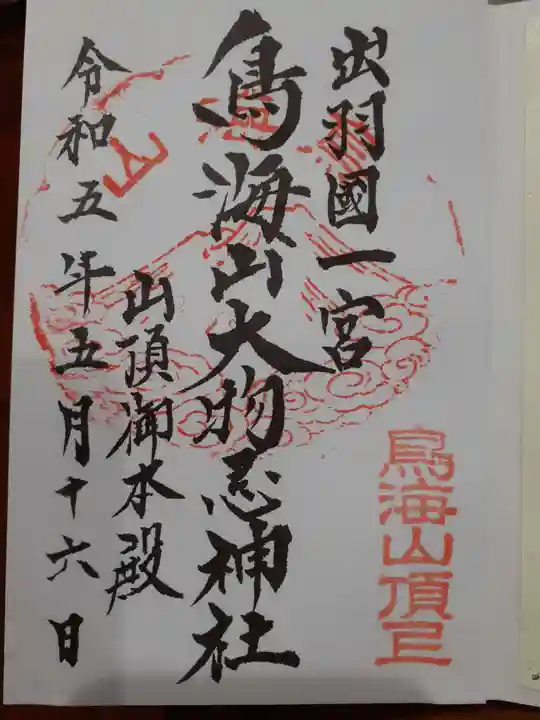 出羽國一宮
鳥海山大物忌神社
山頂御本殿
令和五年五月十六日
鳥海山頂
山